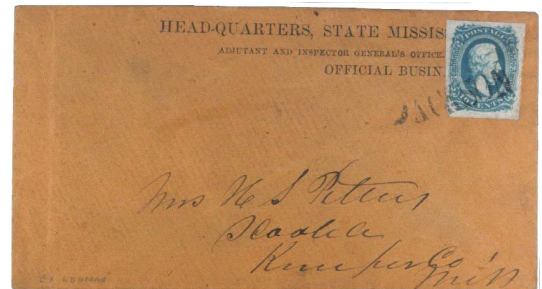 HEAD-QUARTERS, STATE MISSIS
ADJUTANT AND INSPECTOR GENERAL'S OFFICE.
OFFICIAL BUSIN
POSTAGE
CENTS
Mrs H S Peters
Scooba
Kemper Co
Miss